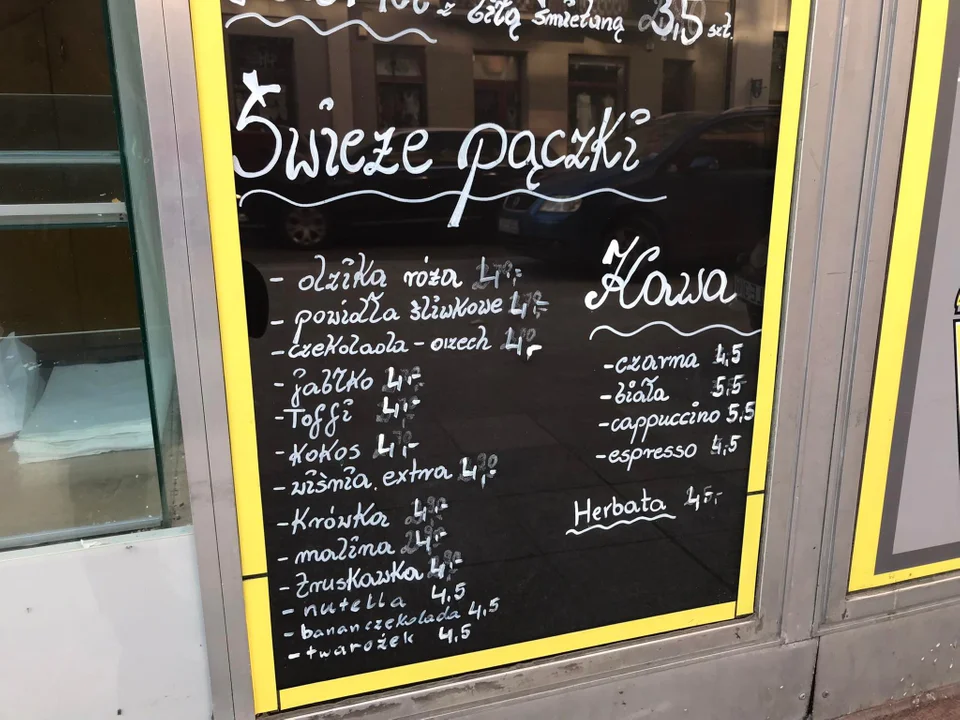 z bitą śmietaną 3,5 szt.
Świeże pączki
- dzika róża 4,-
- powidła śliwkowe 4,-
- czekolada - orzech 4,-
- jabłko 4,-
- Toffi 4,-
- Kokos 4,-
- wiśnia extra 4,-
- Krówka 4,-
- malina 4,-
- Truskawka 4,-
- nutella 4,5
- banan czekolada 4,5
- twarożek 4,5
Kawa
- czarna 4,5
- biała 5,5
- cappuccino 5,5
- espresso 4,5
Herbata